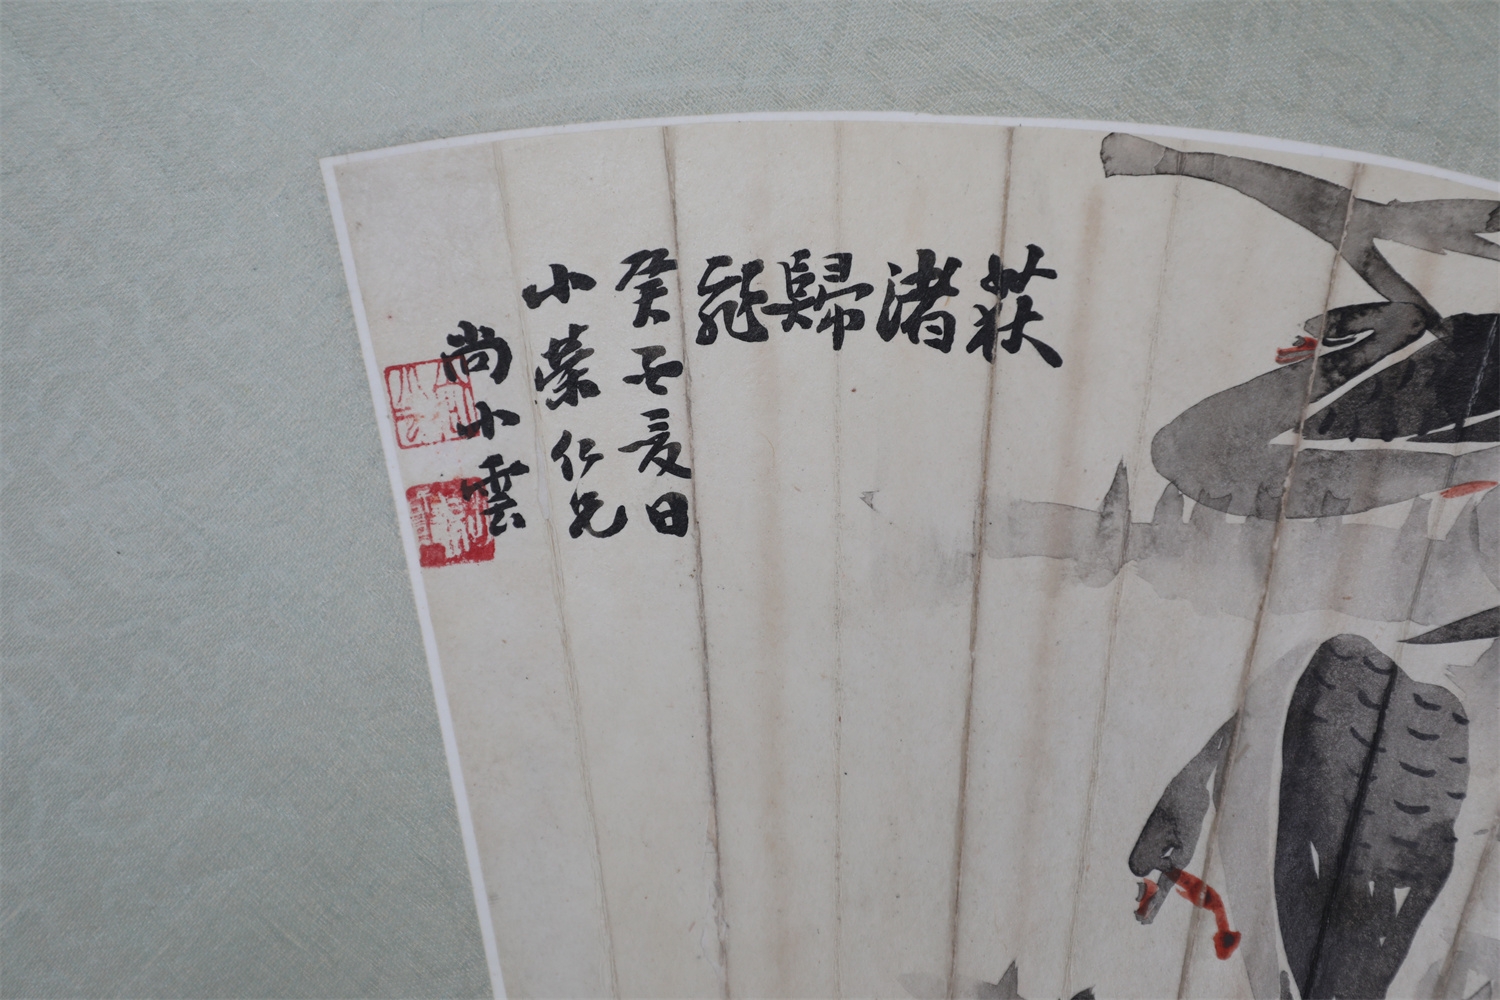 荻渚歸飛
癸丑夏日
小榮仁兄
尚小雲